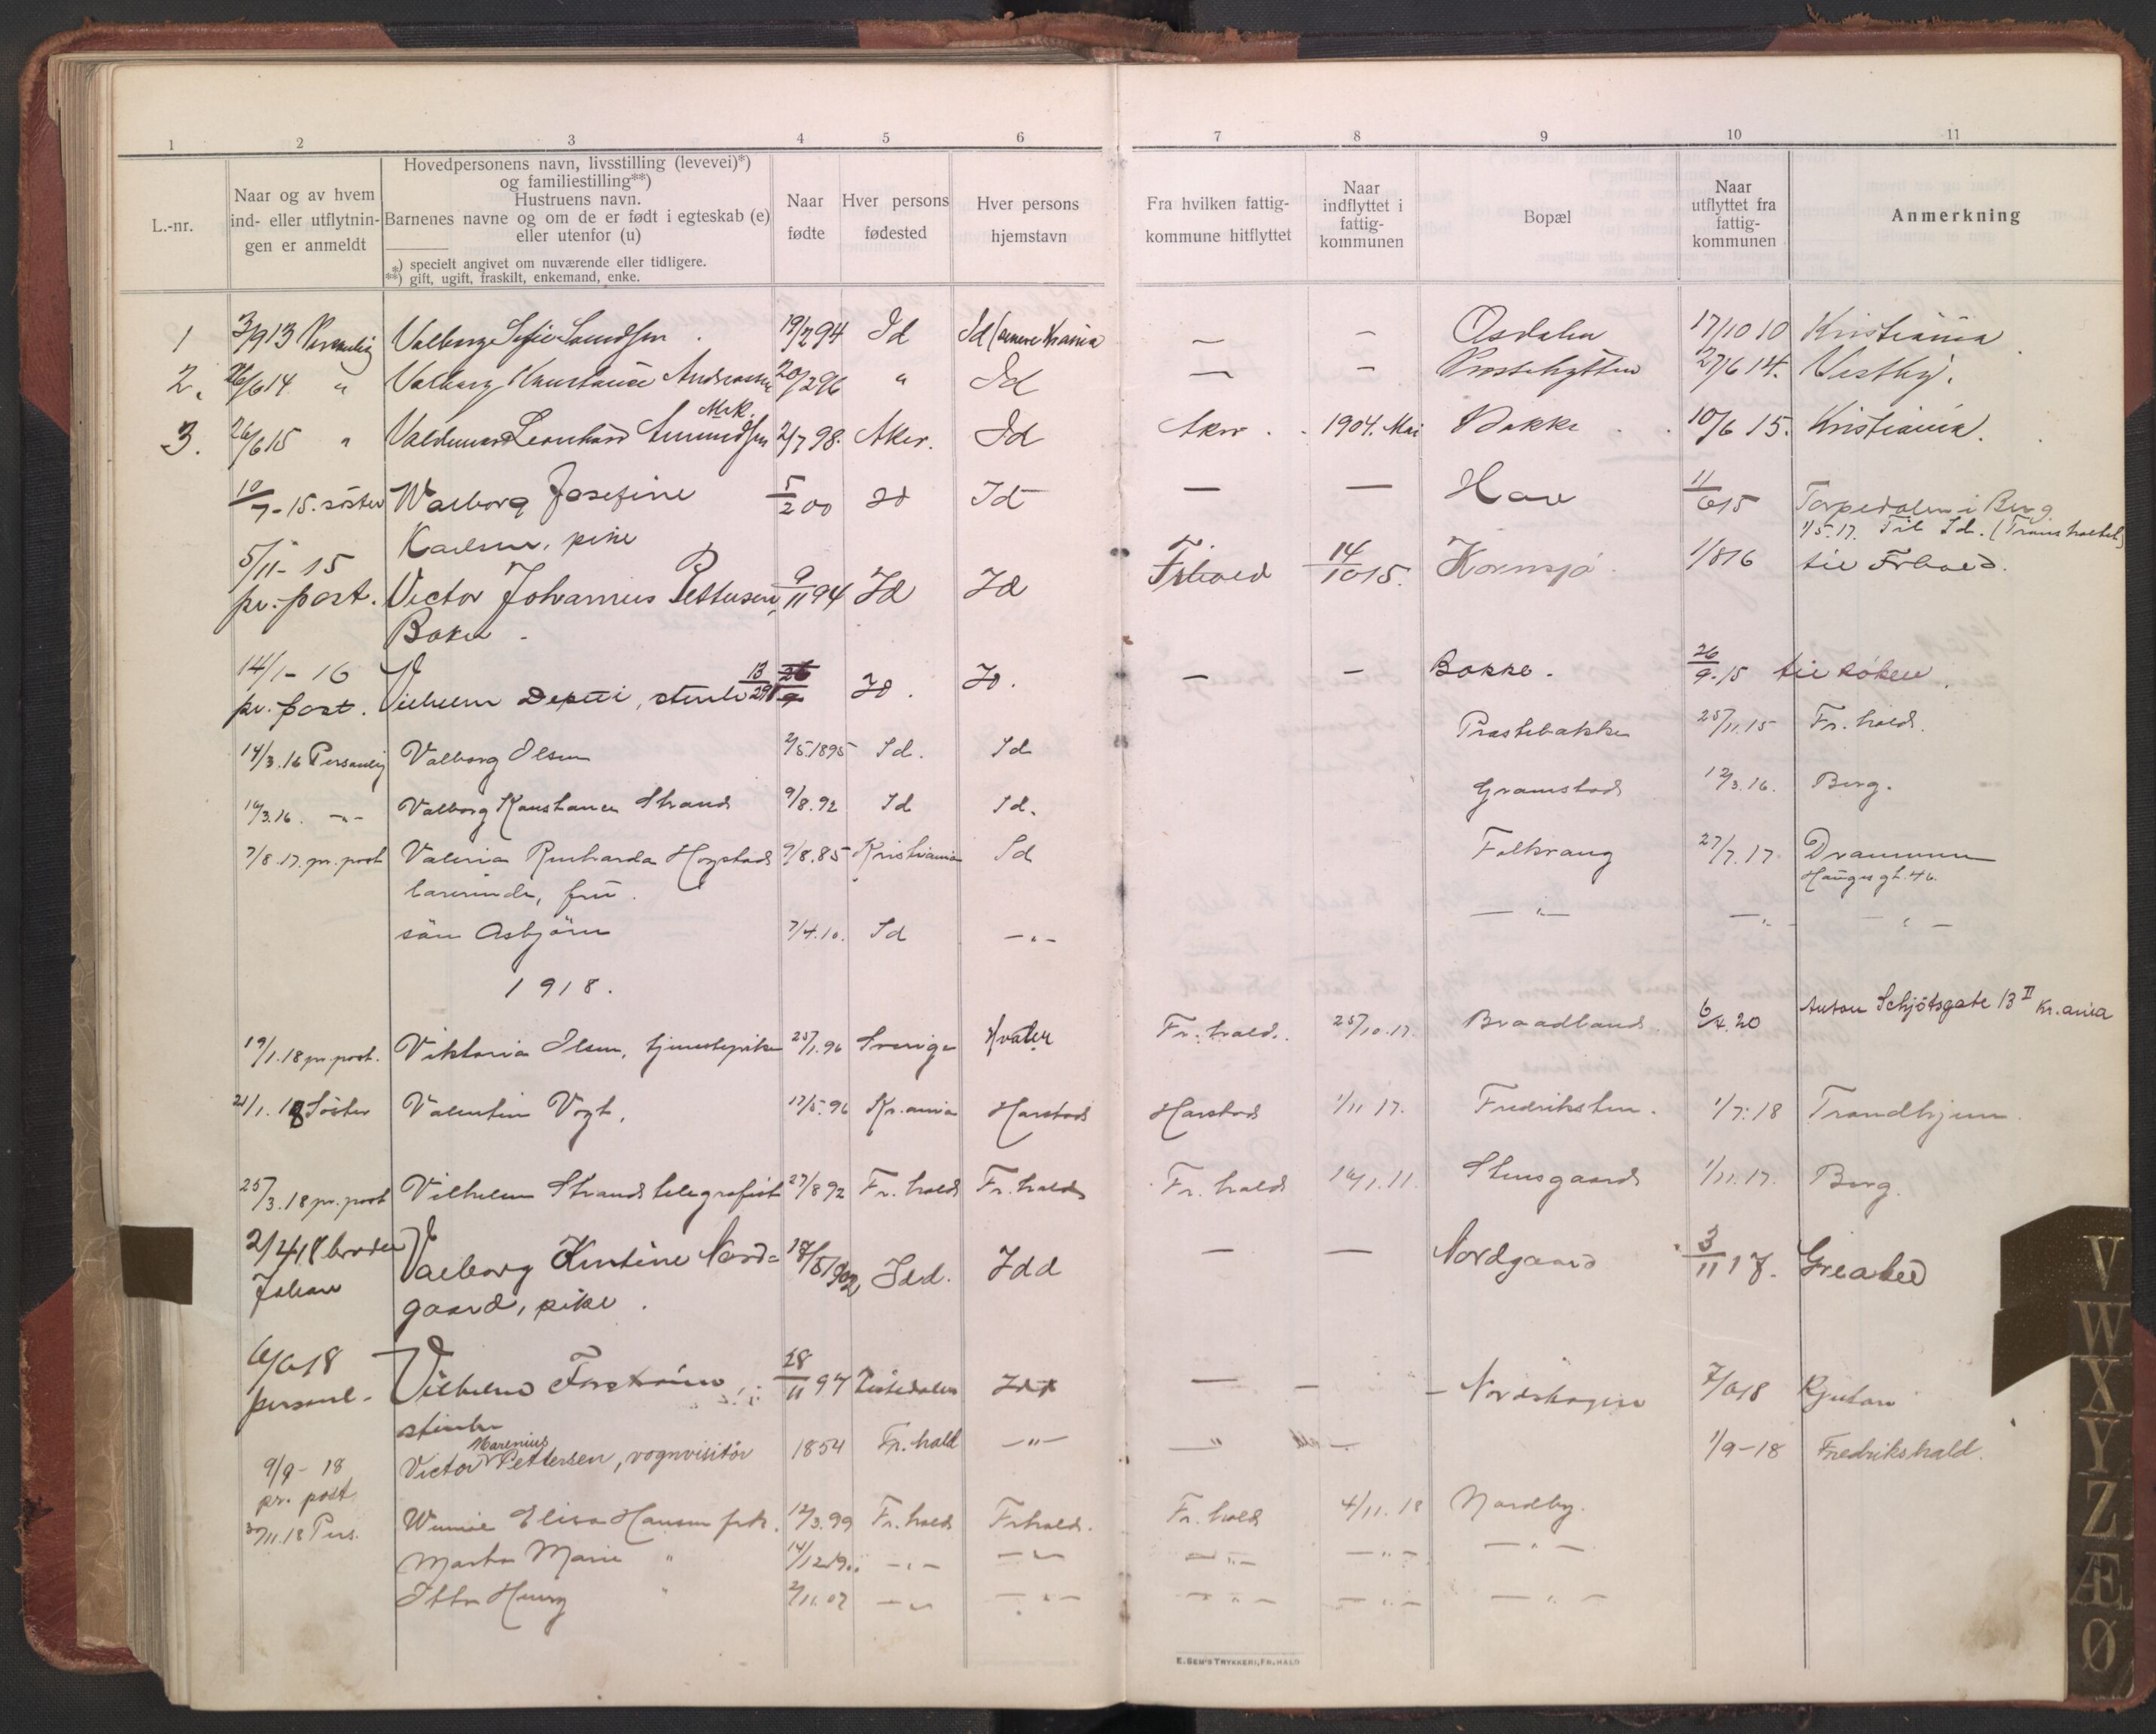 1 2 3 4 5 6 7 8 9 10 11
L.-nr.
Naar og av hvem
ind- eller utflytnin-
gen er anmeldt
Hovedpersonens navn, livsstilling (levevei)*)
og familiestilling**)
Hustruens navn.
Barnenes navne og om de er født i egteskab (e)
eller utenfor (u)
*) specielt angivet om nuværende eller tidligere.
**) gift, ugift, fraskilt, enkemand, enke.
Naar
fødte
Hver persons
fødested
Hver persons
hjemstavn
Fra hvilken fattig-
kommune hitflyttet
Naar
indflyttet i
fattig-
kommunen
Bopæl
Naar
utflyttet fra
fattig-
kommunen
Anmerkning
1 3/9 13 Personlig Valborg Sofie 19/7 94 Id Id — — Asdalen 17/10 10 Kristiania
2. 26/6 14 " Valborg Konstance Andreassen 20/2 96 " Id — — Prestehytten 27/6 14. Vestby.
Mrk.
3. 26/6 15 " Valdemar Leonhard Amundsen 2/7 98. Aker. Id Aker 1904. Mai Bakke 10/6 15. Kristiania.
10/7 - 15. söster Walborg Josefine 5/2 00 Id Id — — Hov 11/6 15 Torpedalen i Berg
Karlsen, pike 1/5.17. Til Id.
5/11 - 15
pr. post. Victor Johannes Pettersen 9/11 94 Id Id Frhald 14/10 15. Kornsjø 1/8 16 til Frhald.
Baker
14/1 - 16
pr. post. Vilhelm 13/2 91 26/9 Id. Id. — — Bakke. 26/9.15 til
14/3.16 Personlig Valborg Olsen 2/5.1895 Id. Id Præstebakke 25/11.15 Fr.hald.
16/3.16. -"- Valborg Konstance Strand 9/8.92 Id Id. Gramstad 12/3.16. Berg.
7/8.17. pr. post Valeria Richarda Hogstad 9/8.85 Kristiania Id Folkvang 27/7.17 Drammen
lærerinde, frue. Haugesgt. 46.
sön Asbjörn 7/4.10. Id -"- -"- -"- -"-
1918.
19/1.18 pr. post. Viktoria Olsen, tjenestepike 25/1.96 Sverige Hvaler Fr.hald. 25/10.17. Braadland 6/4.20 Anton Schjötsgate 13 II Kr.ania
21/1.18 Söster Valentin Vogt, 17/5.96 Kr.ania Harstad Harstad 1/11 17. Fredriksten. 1/7.18 Trondhjem.
25/3.18 pr. post Vilhelm Strand telegrafist 27/8 92 Fr.hald Fr.hald Fr.hald 16/1.11. Stensgaard 1/11.17. Berg.
2/4 18 broder Valborg Kristine Nord- 18/5 1902 Idd. Idd — — Nordgaard 3/11 17. Greaker
Johan gaard, pike.
6/6 18 Vilhelm 28/11 97 Tistedalen Idd — — Nordskogen 7/6 18 Rjukan
personl.
Marenius
9/9 - 18 Victor Pettersen, vognvisitör 1854 Fr.hald -"- -"- — 1/9-18 Fredrikshald.
pr. post
30/11.18 Pers. Elisa Hansen frk. 12/3.99 Fr.hald Frhald. Fr.hald 4/11.18 Nordby.
Marta Marie " -"- -"- -"- -"- -"-
" 2/11.07 -"- -"- -"- -"- -"-
E. SEM'S TRYKKERI, FR.HALD
V
W
X
Y
Z
Æ
Ø